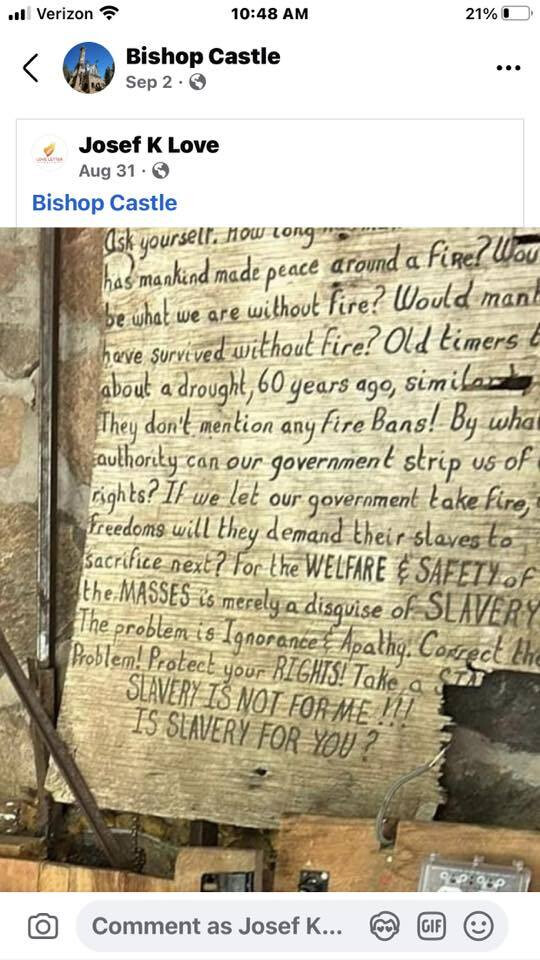 Verizon 10:48 AM 21%
Bishop Castle
Sep 2 ·
Josef K Love
Aug 31 ·
Bishop Castle
Ask yourself. How long
has mankind made peace around a fire? Wou
be what we are without fire? Would mank
have survived without fire? Old timers t
about a drought, 60 years ago, similar
They don't mention any Fire Bans! By wha
authority can our government strip us of
rights? If we let our government take fire,
freedoms will they demand their slaves to
sacrifice next? For the WELFARE & SAFETY of
the MASSES is merely a disguise of SLAVERY
The problem is Ignorance & Apathy. Correct the
Problem! Protect your RIGHTS! Take a STA
SLAVERY IS NOT FOR ME !!!
IS SLAVERY FOR YOU?
Comment as Josef K... GIF